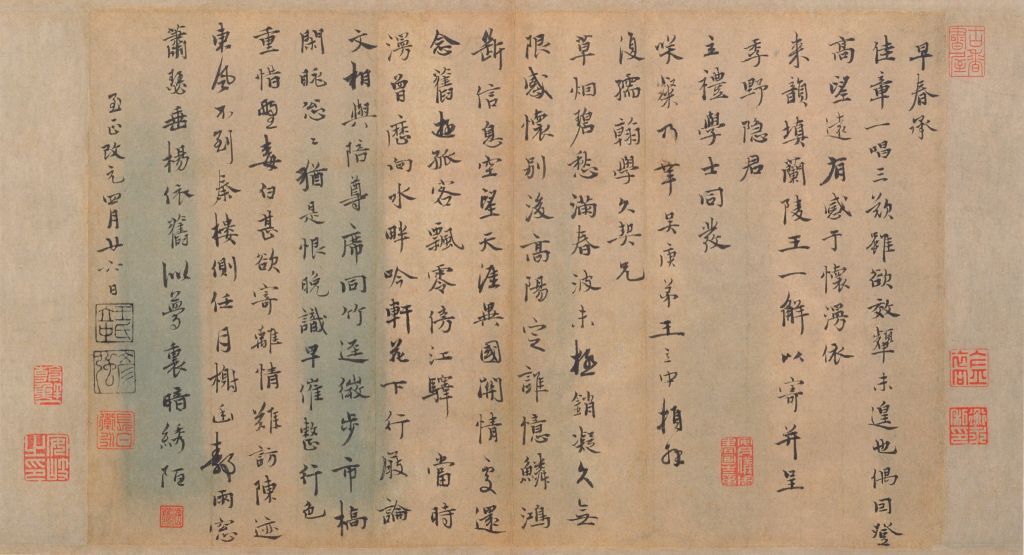 早春承
佳章一唱三歎雖欲效顰未遑也偶因登
高望遠有感于懷漫依
来韻填蘭陵王一解以寄并呈
季野隐君
主禮學士同發
咲粲乃幸吴庚弟王立中頓
復孺翰學久契兄
草烟碧愁滿春波未極銷凝久無
限感懷别後高陽定誰憶鱗鴻
斷信息空望天涯異國關情處還
念舊遊孤客飄零傍江驛 當時
漫曾歷向水畔吟軒花下行屐論
文相與陪尊席同竹逕緩步市橋
閑眺怱〻猶是恨晚識早催整行色
重惜鬢毒白甚欲寄離情難訪陳迹
東風不到秦樓側任月榭 雨窓
蕭瑟垂楊依舊似夢裏暗綉陌
至正改元四月廿六日
王氏
彦強